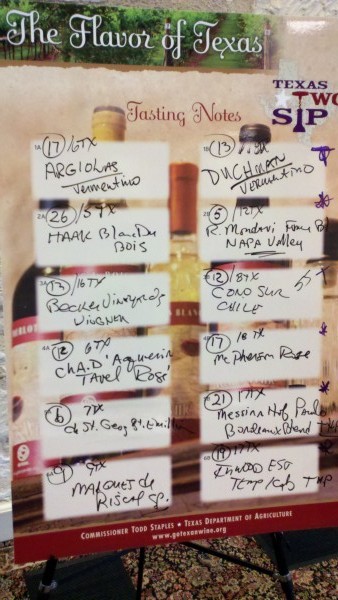 The Flavor of Texas
TEXAS
TWO
SIP
Tasting Notes
1A 17 /6TX
ARGIOLAS
Vermentino
1B 13
DUCHMAN
VERMENTINO
2A 26 /5 TX
HAAK Blanc Du
BOIS
5 /12TX
R. Mondavi Fume Bl
NAPA Valley
3A 12 /16TX
Becker Vineyards
VIOGNIER
12 /8TX
CONO SUR
CHILE
4A 12 6TX
CHA. D'Aqueria
TAVEL Rosé
17 /18 TX
McPherson Rose
6 7TX
St. Georg St. Emillion
21 17TX
Messina Hof Paulo
Bordeaux Blend
9TX
MARQUES de
RISCAL SP.
19 17TX
INWOOD EST
TEMP/Cab
COMMISSIONER TODD STAPLES • TEXAS DEPARTMENT OF AGRICULTURE
www.gotexanwine.org